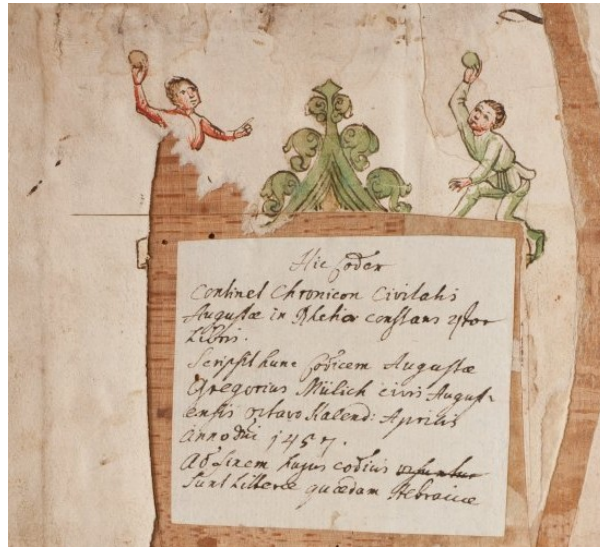 Hic Codex
Continet Chronicon Civitatis
Augustæ in Rhetia constans
Libris.
Scripsit hunc Codicem Augustæ
Gregorius Mülich civis August-
ensis octavo Kalend: Aprilis
anno dni 1457.
Ad finem hujus codicis
sunt Litteræ quædam Hebraicæ